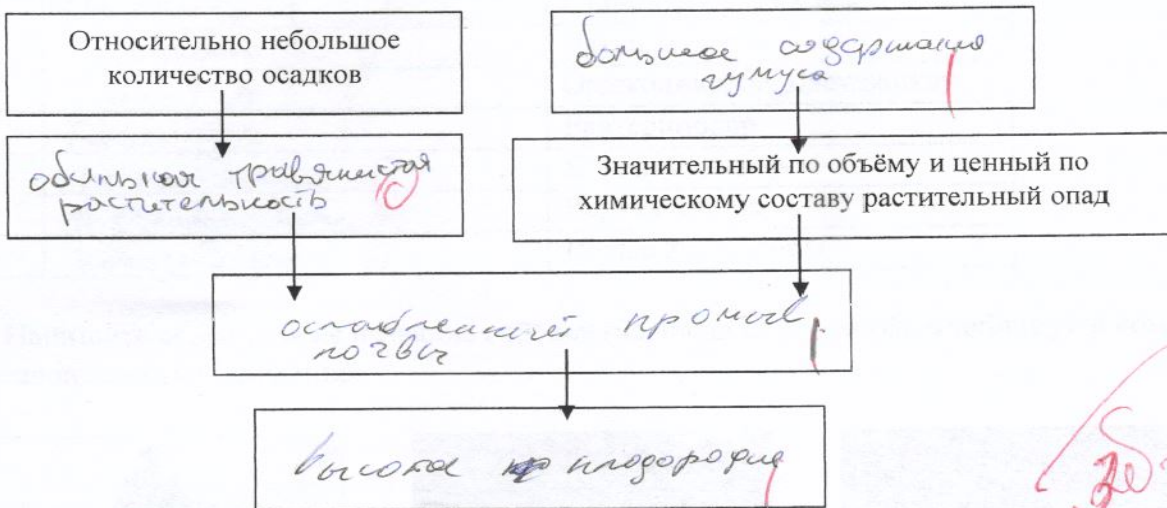 Относительно небольшое
количество осадков
большое содержания
гумуса
обильная травянистая
растительность 0
Значительный по объёму и ценный по
химическому составу растительный опад
ослабленный промыв
почвы
высота плодородие